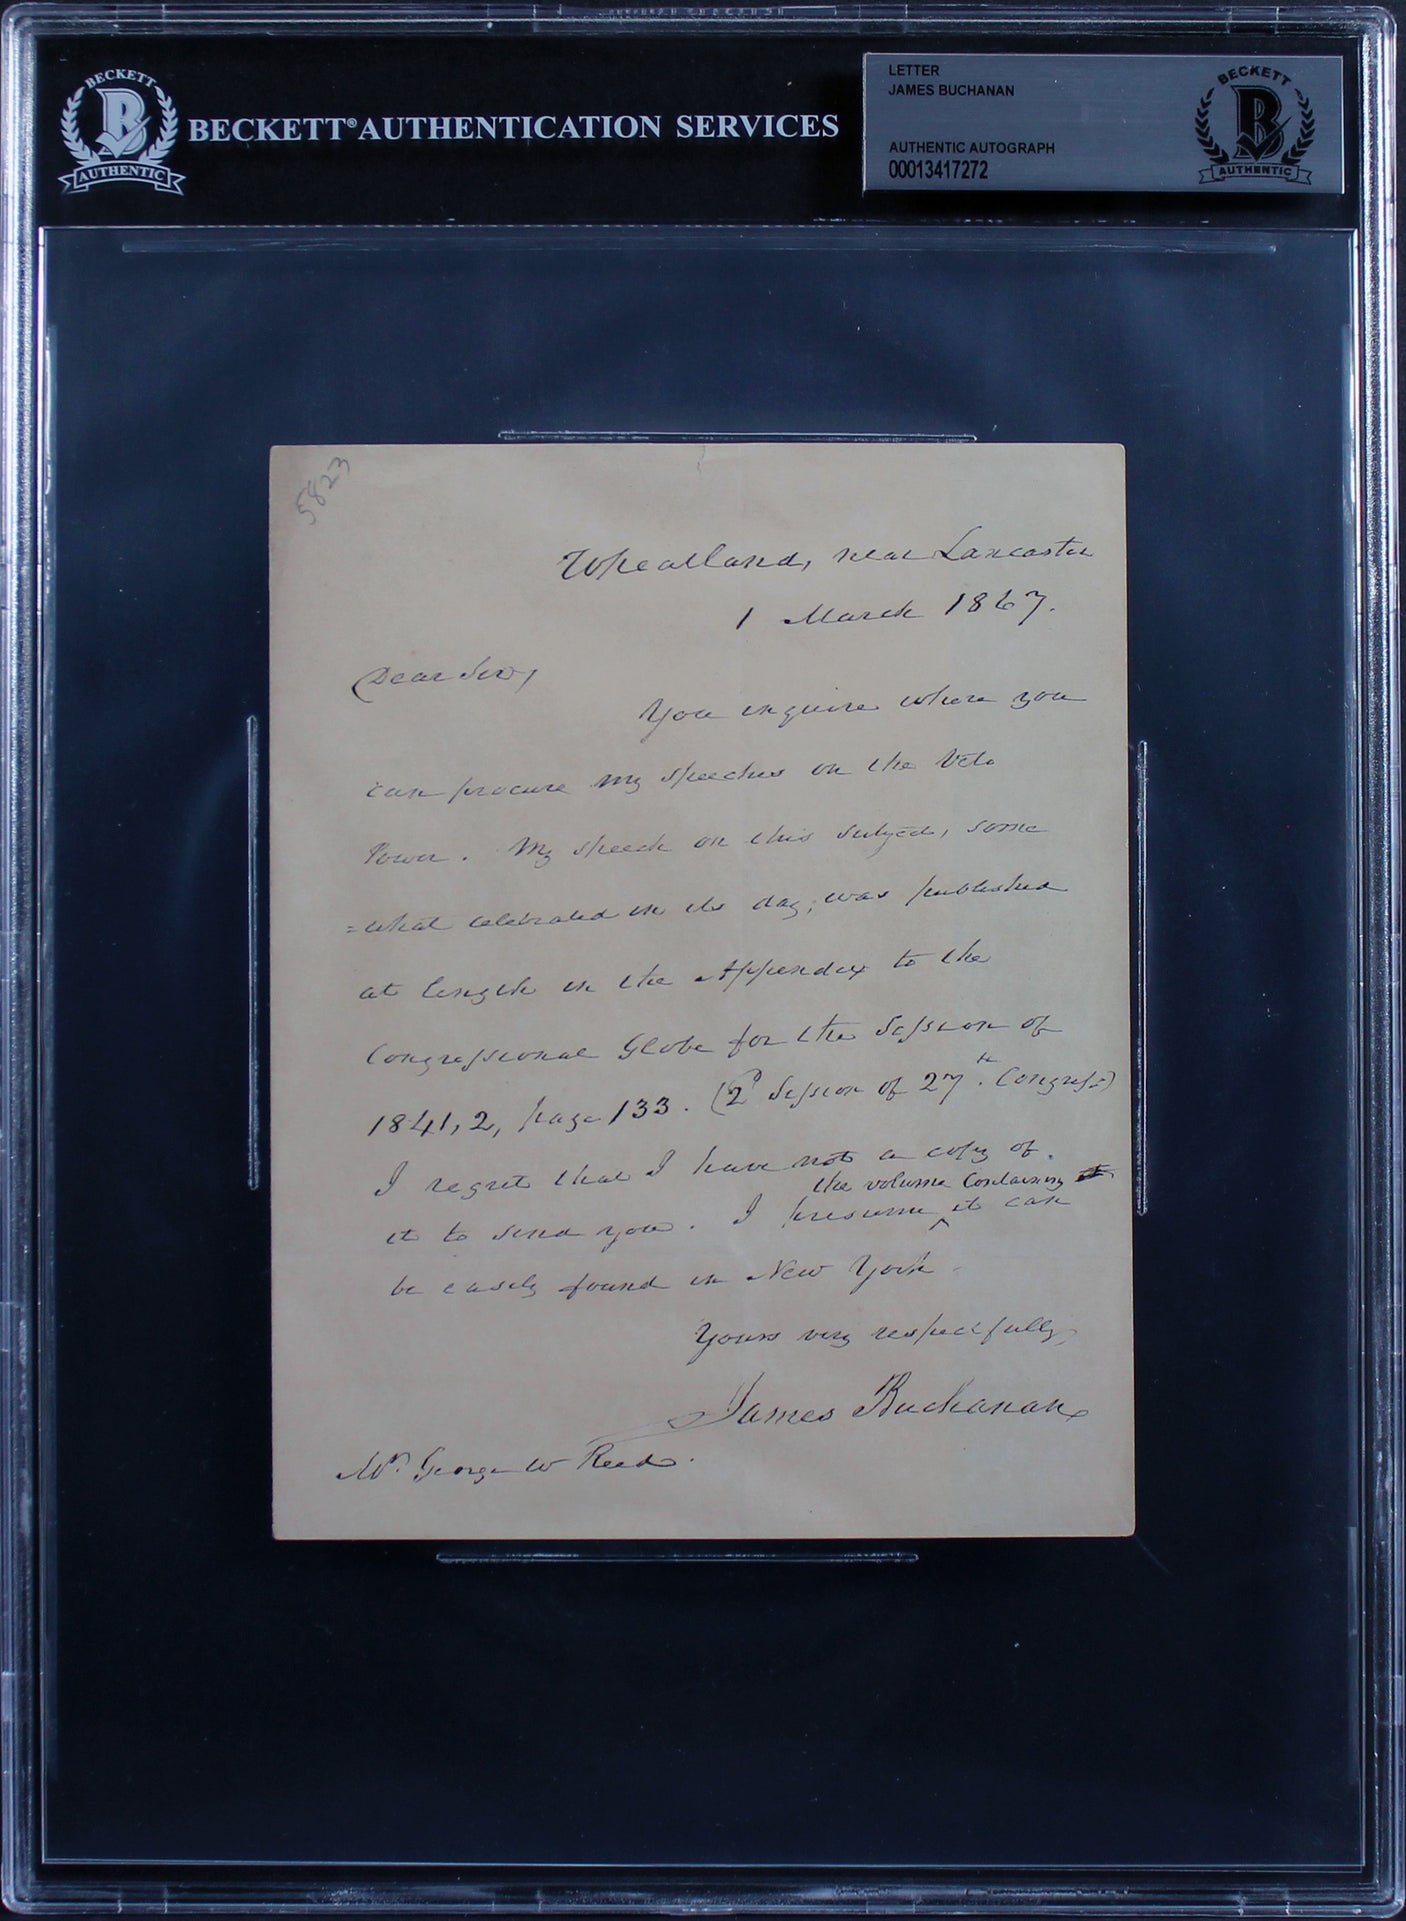 BECKETT
B
AUTHENTIC
BECKETT® AUTHENTICATION SERVICES
LETTER
JAMES BUCHANAN
AUTHENTIC AUTOGRAPH
00013417272
BECKETT
B
AUTHENTIC
5823
Wheatland, near Lancaster
1 March 1867.
Dear Sir,
You inquire where you
can procure my speeches on the Veto
Power. My speech on this subject, some
=what celebrated in its day, was published
at length in the Appendix to the
Congressional Globe for the Session of
1841, 2, page 133. (2d Session of 27th Congress)
I regret that I have not a copy of
the volume containing
it to send you. I presume ^ it can
be easily found in New York.
Yours very respectfully,
James Buchanan
Mr. George W Reed.